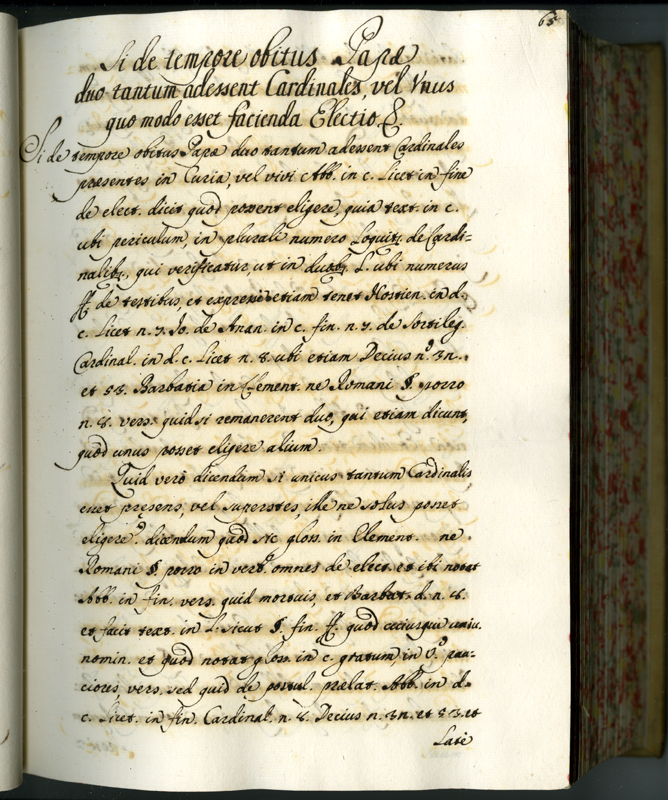 65
Si de tempore obitus Papæ
duo tantum adessent Cardinales, vel Vnus
quo modo esset facienda Electio, &.
Si de tempore obitus Papæ duo tantum adessent Cardinales
præsentes in Curia, vel vivi Abb. in c. Licet in fine
de elect. dicit quod possent eligere, quia text. in c.
ubi periculum, in plurali numero Loquitr. de Cardi=
nalibz., qui verificatur, ut in duobz. L. ubi numerus
ff. de testibus, et etiam tenet Hostien. in d.
c. Licet n. 7. Jo. de Anan. in c. fin. n. 7. de sortileg.
Cardinal. in d. c. Licet n. 8. ubi etiam Decius n.
et 58. Barbatia in Clement. ne Romani §. porro
n. vers. quid si remanerent duo, qui etiam dicunt,
quòd unus posset eligere alium.
Quid verò dicendum si unicus tantum Cardinalis
esset pręsens, vel superstes, ille ne solus posset
eligere? dicendum quòd sic gloss. in Clement. ne
Romani §. porro in verb. omnes de elect. et ibi notat
Abb. in fin. vers. quid mortuis, et Barbat. d. n.
et facit text. in L. sicut §. fin. ff. quòd cuiusque
nomin. et quòd notat gloss. in c. gratum in V. pau=
ciores, vers. sed quid de postul. prælat. Abb. in d.
c. Licet. in fin. Cardinal. n. Decius n. et 53. et
Latè